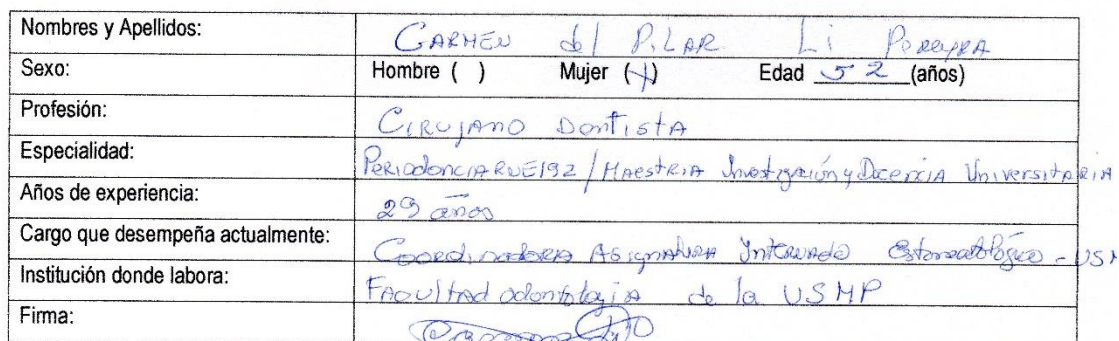 Nombres y Apellidos: CARMEN del PILAR Li Pereyra
Sexo: Hombre ( ) Mujer (X) Edad 52 (años)
Profesión: CIRUJANO Dentista
Especialidad: Periodoncia RNE192 / Maestria Investigación y Docencia Universitaria
Años de experiencia: 29 años
Cargo que desempeña actualmente: Coordinadora Asignatura Internado Estomatológico - USM
Institución donde labora: Facultad odontologia de la USMP
Firma: